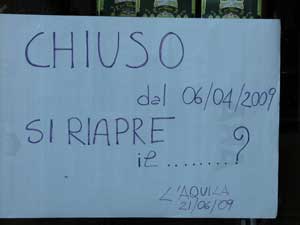 CHIUSO
dal 06/04/2009
SI RIAPRE
il ........?
L'AQUILA
21/06/09